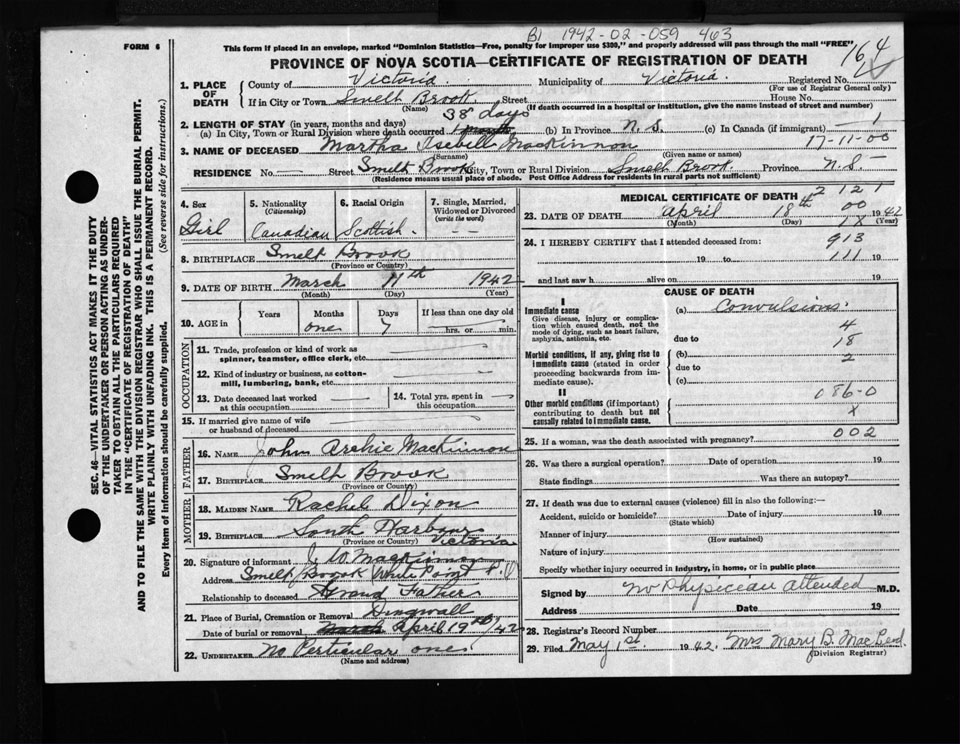 B1 1942-02-059 463
FORM 6
This form if placed in an envelope, marked "Dominion Statistics—Free, penalty for improper use $300," and properly addressed will pass through the mail "FREE"
164
PROVINCE OF NOVA SCOTIA—CERTIFICATE OF REGISTRATION OF DEATH
1. PLACE OF DEATH County of Victoria. Municipality of Victoria. Registered No.
(For use of Registrar General only)
If in City or Town Smelt Brook Street House No.
(Name) (If death occurred in a hospital or institution, give the name instead of street and number)
2. LENGTH OF STAY (in years, months and days) 38 days
(a) In City, Town or Rural Division where death occurred 1 month (b) In Province N. S. (c) In Canada (if immigrant) 1
3. NAME OF DECEASED Martha Isebell MacKinnon 17-11-00
(Surname) (Given name or names)
RESIDENCE No. — Street Smelt Brook City, Town or Rural Division Smelt Brook. Province N.S—
(Residence means usual place of abode. Post Office Address for residents in rural parts not sufficient)
4. Sex Girl
5. Nationality (Citizenship) Canadian
6. Racial Origin Scottish.
7. Single, Married, Widowed or Divorced (write the word) – –
8. BIRTHPLACE Smelt Brook
(Province or Country)
9. DATE OF BIRTH March 11th 1942
(Month) (Day) (Year)
10. AGE in Years Months one Days 7 If less than one day old
hrs. or min.
OCCUPATION
11. Trade, profession or kind of work as spinner, teamster, office clerk, etc.
12. Kind of industry or business, as cotton-mill, lumbering, bank, etc.
13. Date deceased last worked at this occupation
14. Total yrs. spent in this occupation
15. If married give name of wife or husband of deceased
FATHER
16. NAME John Archie MacKinnon
17. BIRTHPLACE Smelt Brook
(Province or Country)
MOTHER
18. MAIDEN NAME Rachel Dixon
19. BIRTHPLACE South Harbour Victoria
(Province or Country)
20. Signature of informant J. W MacKinnon
Address Smelt Brook White Point
Relationship to deceased Grand Father
21. Place of Burial, Cremation or Removal Dingwall
Date of burial or removal March April 19th/42
22. UNDERTAKER No Perticular one
(Name and address)
MEDICAL CERTIFICATE OF DEATH
2 121
23. DATE OF DEATH April 18th 00 1942
(Month) (Day) 1X (Year)
24. I HEREBY CERTIFY that I attended deceased from:
913
19 to 111 19
and last saw h alive on 19
CAUSE OF DEATH
I
Immediate cause
Give disease, injury or complication which caused death, not the mode of dying, such as heart failure, asphyxia, asthenia, etc.
(a) Convulsions.
4
due to
18
Morbid conditions, if any, giving rise to immediate cause (stated in order proceeding backwards from immediate cause).
(b) 2
due to
(c)
II
Other morbid conditions (if important) contributing to death but not causally related to immediate cause.
086-0
X
25. If a woman, was the death associated with pregnancy? 002
26. Was there a surgical operation? Date of operation 19
State findings Was there an autopsy?
27. If death was due to external causes (violence) fill in also the following:—
Accident, suicide or homicide? Date of injury 19
(State which)
Manner of injury
(How sustained)
Nature of injury
Specify whether injury occurred in industry, in home, or in public place
Signed by No Physicean attended M.D.
Address Date 19
28. Registrar's Record Number
29. Filed May 1st. 1942. Mrs Mary B. MacLeod
(Division Registrar)
SEC. 46—VITAL STATISTICS ACT MAKES IT THE DUTY
OF THE UNDERTAKER OR PERSON ACTING AS UNDER-
TAKER TO OBTAIN ALL THE PARTICULARS REQUIRED
IN THE "CERTIFICATE OF REGISTRATION OF DEATH"
AND TO FILE THE SAME WITH THE DIVISION REGISTRAR WHO SHALL ISSUE THE BURIAL PERMIT.
WRITE PLAINLY WITH UNFADING INK. THIS IS A PERMANENT RECORD.
Every item of information should be carefully supplied. (See reverse side for instructions.)